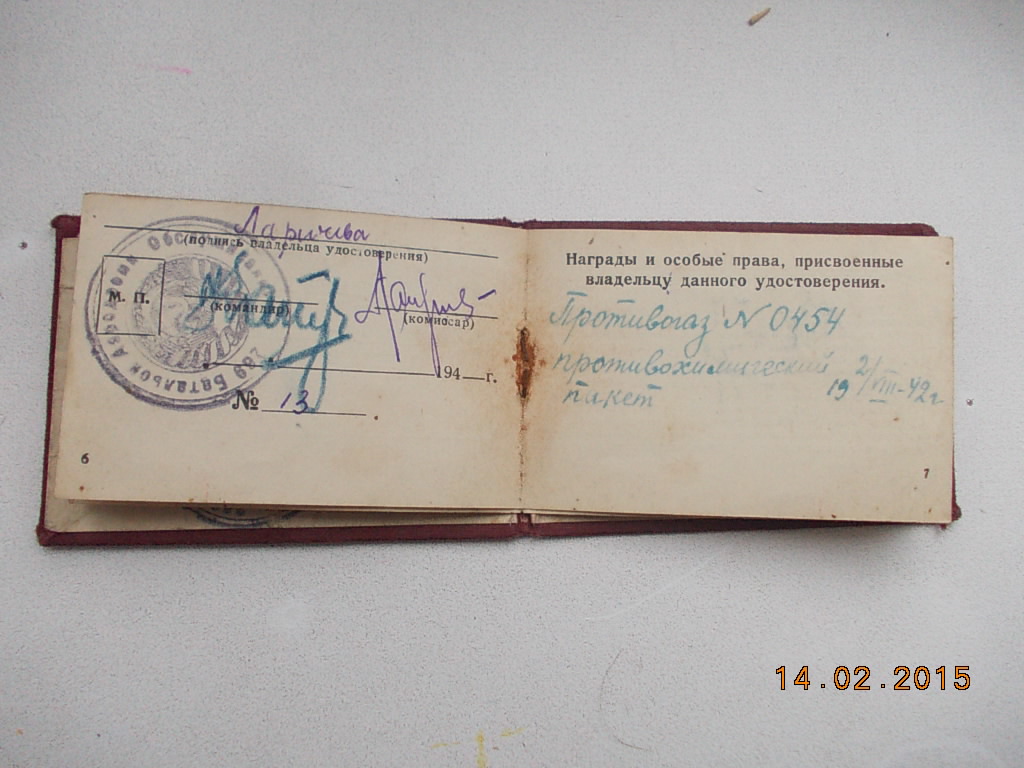 Ларичева
(подпись владельца удостоверения)
М. П.
(командир)
(комиссар)
194 г.
№ 13
289 Батальон Аэродромн Обслуживан
6
Награды и особые права, присвоенные
владельцу данного удостоверения.
Противогаз N 0454
противохимический
пакет 19 2/VIII-42г
7
14.02.2015